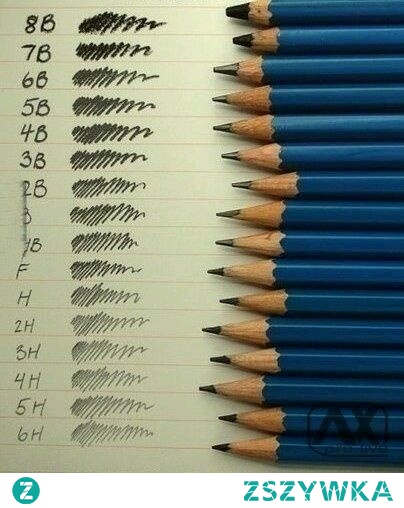 8B
7B
6B
5B
4B
3B
2B
B
HB
F
H
2H
3H
4H
5H
6H
AX
Z
ZSZYWKA